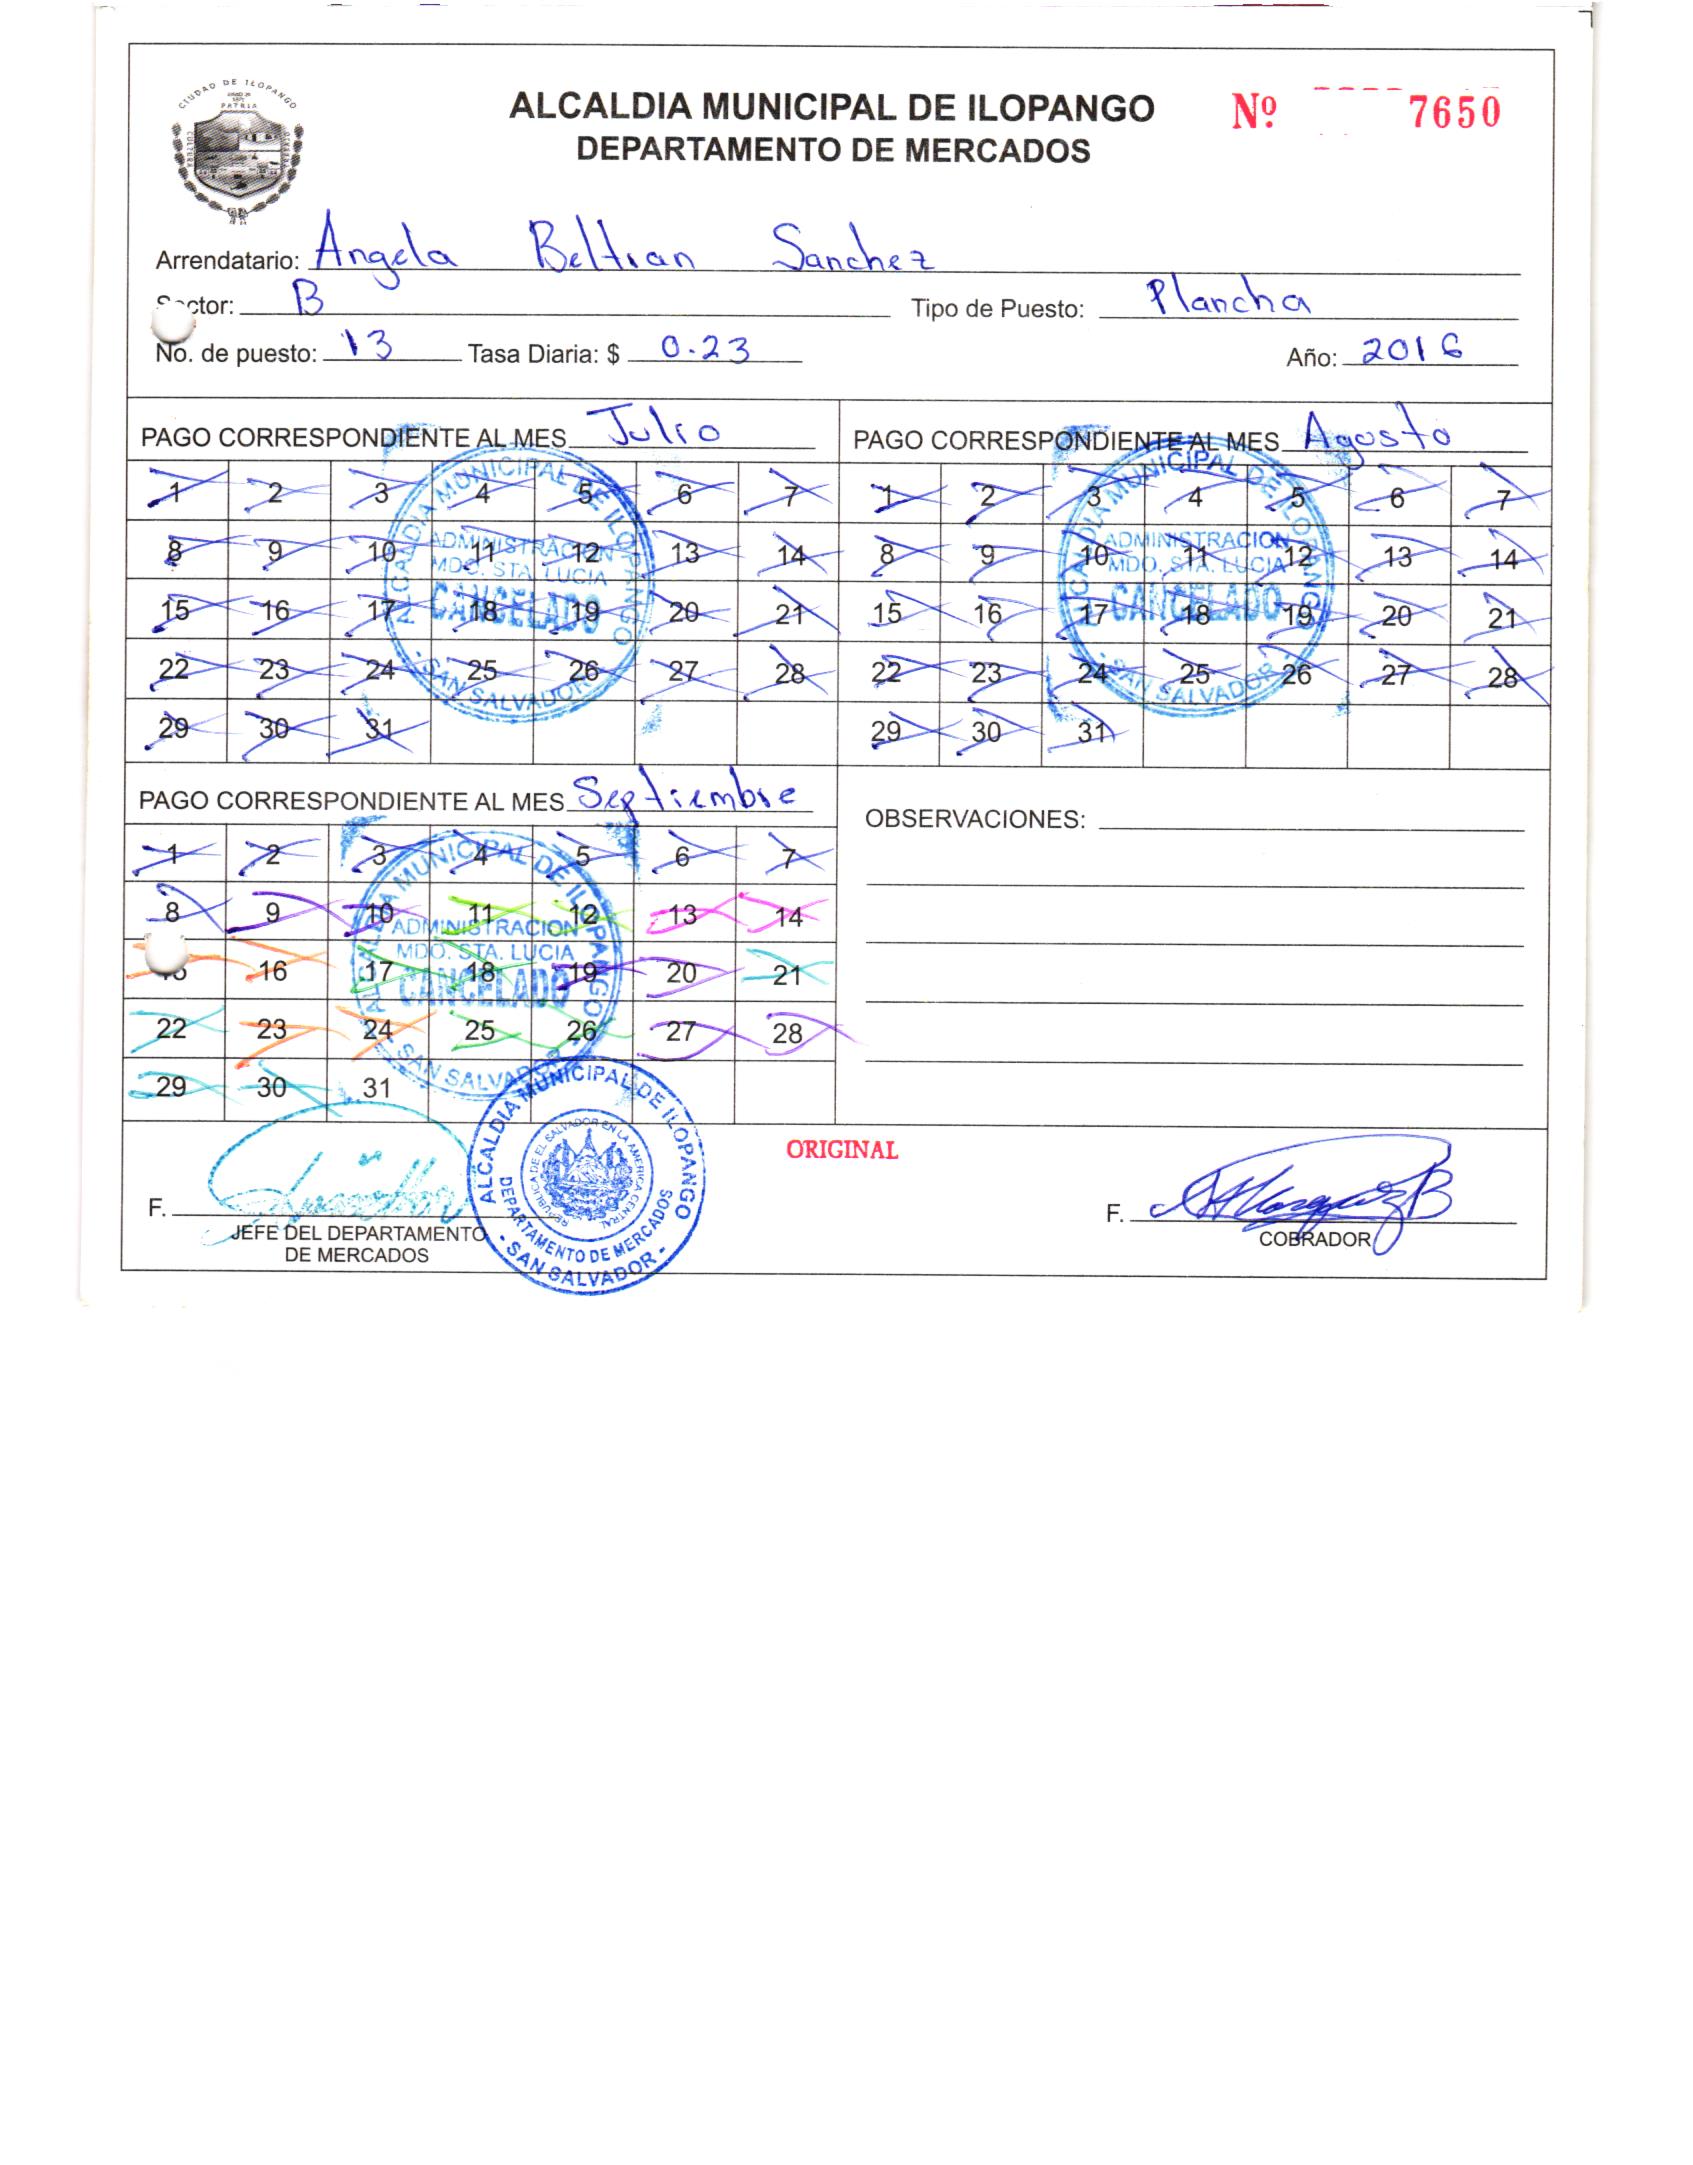 CIUDAD DE ILOPANGO
PATRIA
ALCALDIA MUNICIPAL DE ILOPANGO
DEPARTAMENTO DE MERCADOS
Nº 7650
Arrendatario: Angela Beltran Sanchez
Sector: B Tipo de Puesto: Plancha
No. de puesto: 13 Tasa Diaria: $ 0.23 Año: 2016
PAGO CORRESPONDIENTE AL MES Julio
1 2 3 4 5 6 7
8 9 10 11 12 13 14
15 16 17 18 19 20 21
22 23 24 25 26 27 28
29 30 31
ALCALDIA MUNICIPAL DE ILOPANGO
ADMINISTRACION
MDO. STA. LUCIA
CANCELADO
- SAN SALVADOR -
PAGO CORRESPONDIENTE AL MES Agosto
1 2 3 4 5 6 7
8 9 10 11 12 13 14
15 16 17 18 19 20 21
22 23 24 25 26 27 28
29 30 31
ALCALDIA MUNICIPAL DE ILOPANGO
ADMINISTRACION
MDO. STA. LUCIA
CANCELADO
- SAN SALVADOR -
PAGO CORRESPONDIENTE AL MES Septiembre
1 2 3 4 5 6 7
8 9 10 11 12 13 14
15 16 17 18 19 20 21
22 23 24 25 26 27 28
29 30 31
ALCALDIA MUNICIPAL DE ILOPANGO
ADMINISTRACION
MDO. STA. LUCIA
CANCELADO
- SAN SALVADOR -
OBSERVACIONES:
F.
JEFE DEL DEPARTAMENTO
DE MERCADOS
ALCALDIA MUNICIPAL DE ILOPANGO
REPUBLICA DE EL SALVADOR EN LA AMERICA CENTRAL
DEPARTAMENTO DE MERCADOS
- SAN SALVADOR -
ORIGINAL
F.
COBRADOR